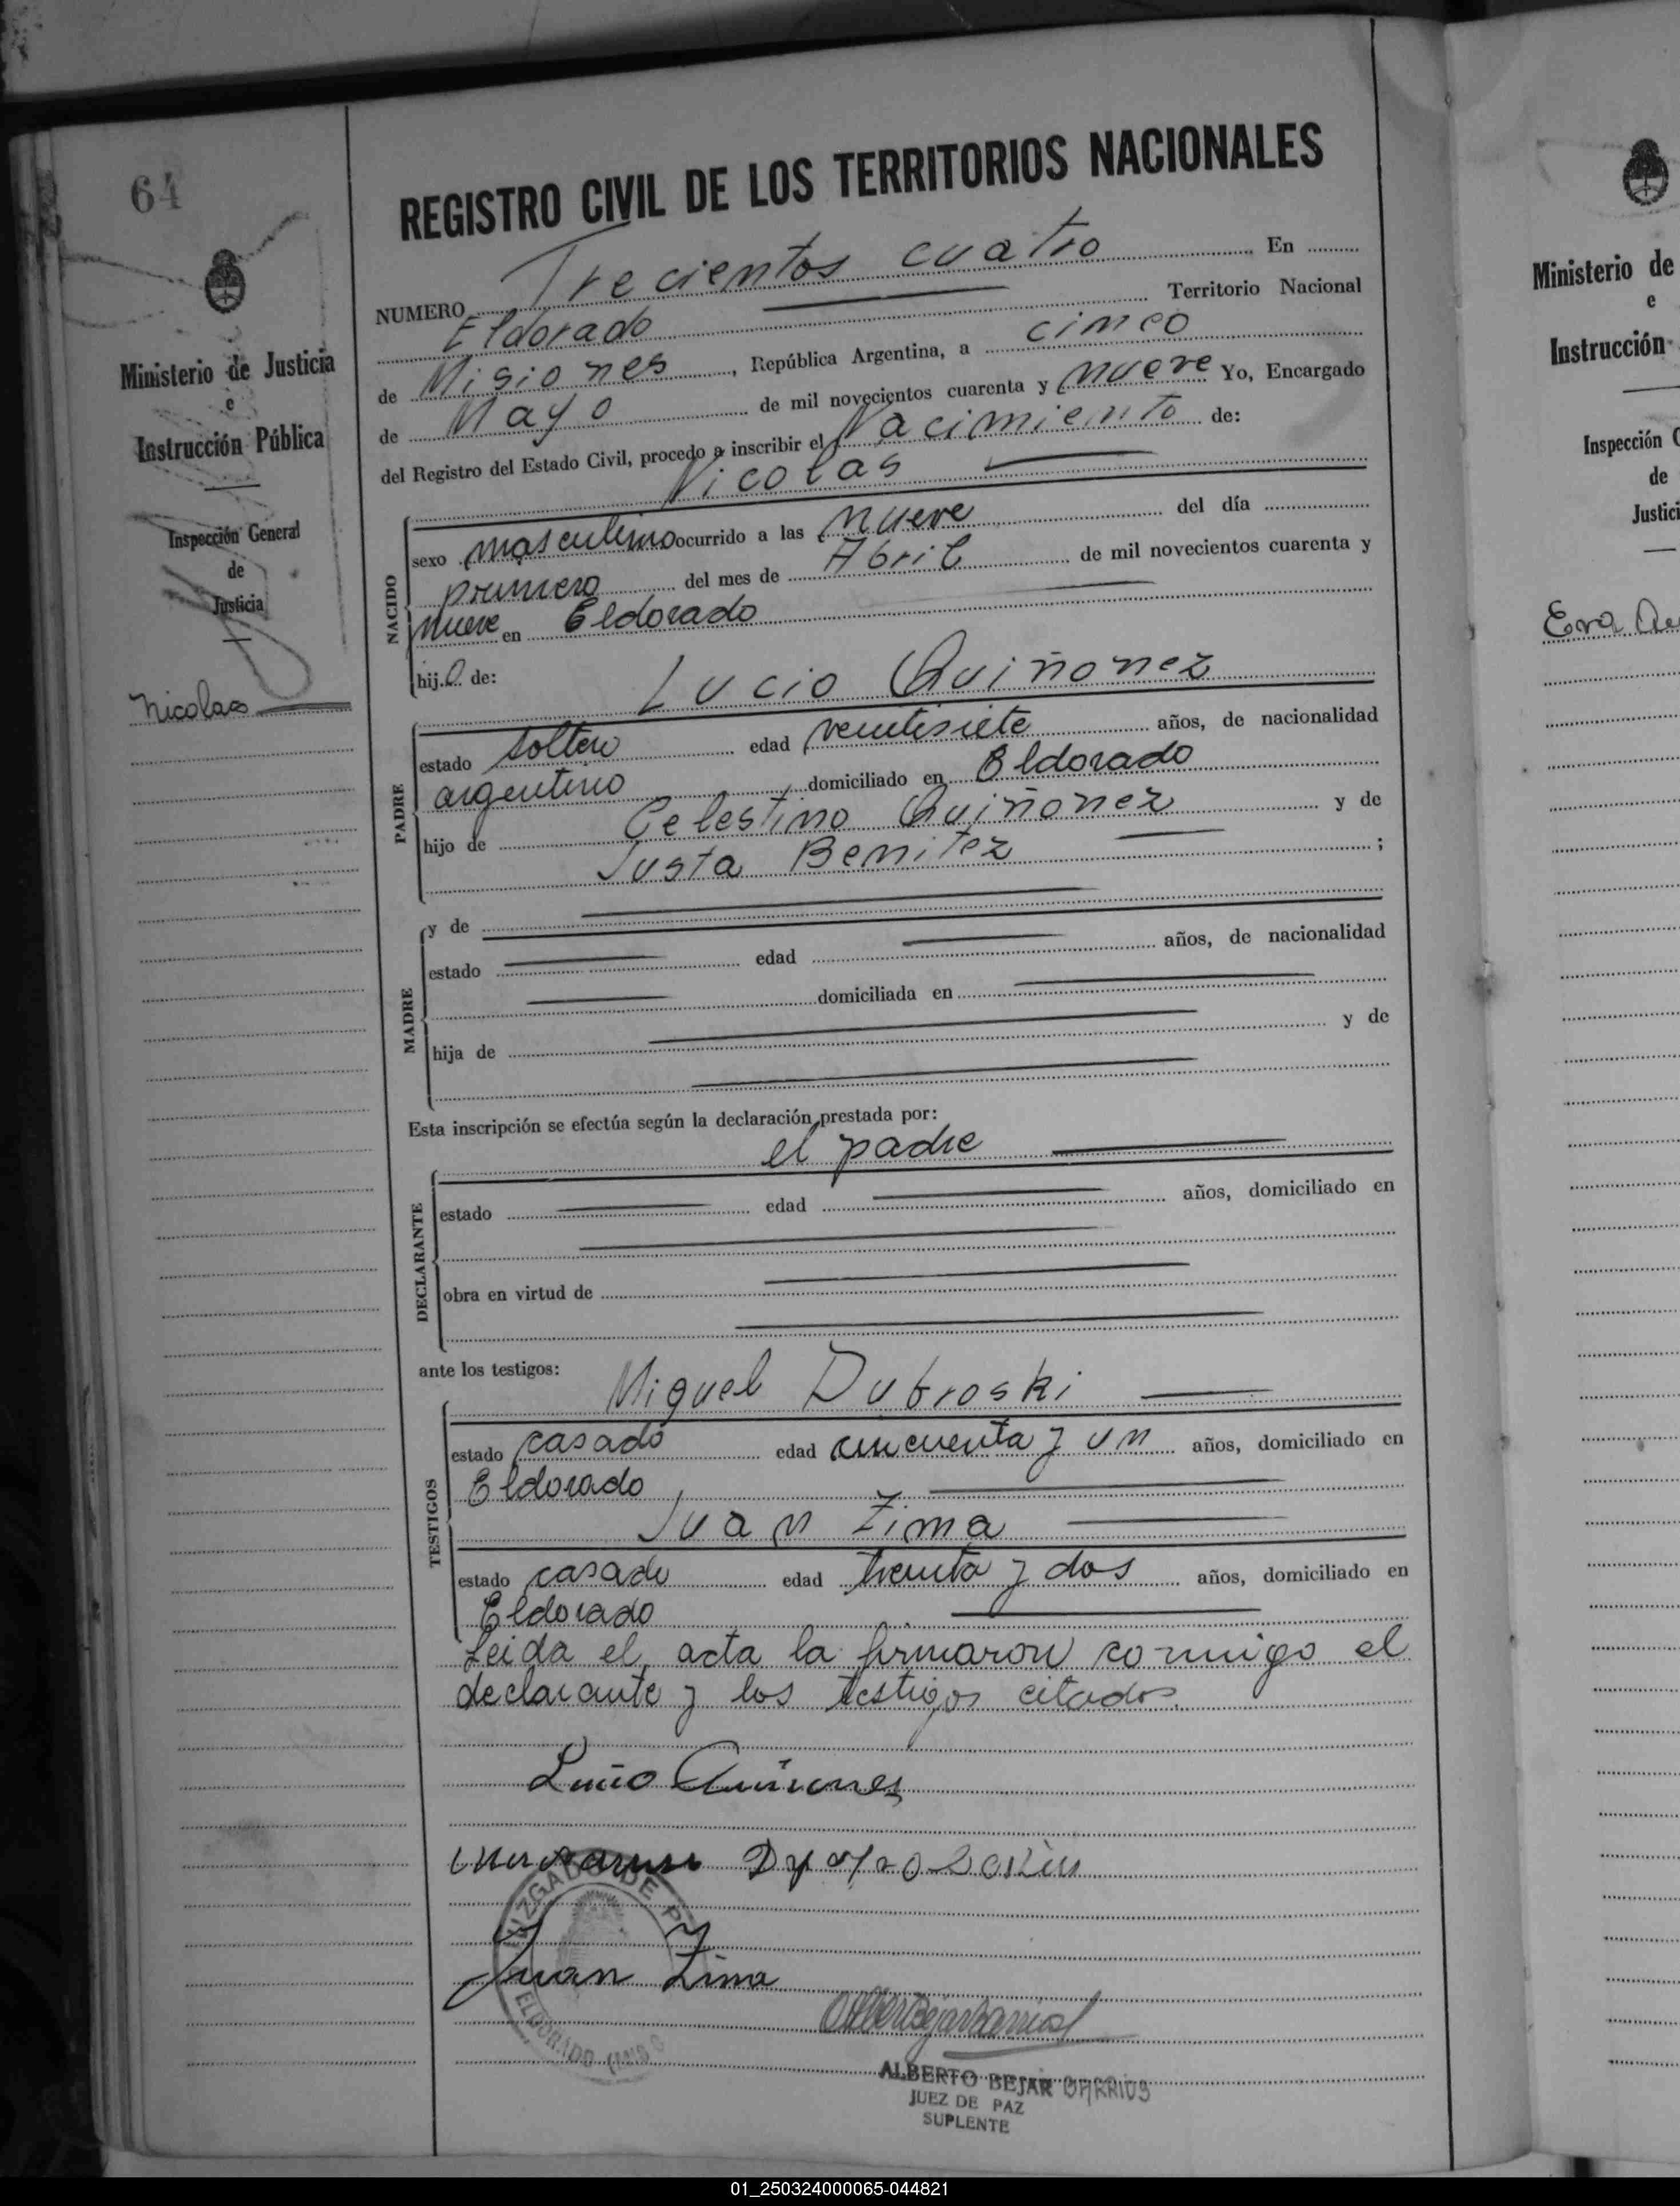 64
REGISTRO CIVIL DE LOS TERRITORIOS NACIONALES
NUMERO Trecientos cuatro En
Eldorado Territorio Nacional
de Misiones, República Argentina, a cinco
de Mayo de mil novecientos cuarenta y nueve Yo, Encargado
del Registro del Estado Civil, procedo a inscribir el Nacimiento de:
Nicolas
Ministerio de Justicia
e
Instrucción Pública
Inspección General
de
Justicia
Nicolas
NACIDO
sexo masculino ocurrido a las nueve del día
primero del mes de Abril de mil novecientos cuarenta y
nueve en Eldorado
hijo de:
Lucio Quiñonez
PADRE
estado soltero edad veintisiete años, de nacionalidad
argentino domiciliado en Eldorado
hijo de Celestino Quiñonez y de
Justa Benitez ;
MADRE
y de
estado edad años, de nacionalidad
domiciliada en
hija de y de
Esta inscripción se efectúa según la declaración prestada por:
el padre
DECLARANTE
estado edad años, domiciliado en
obra en virtud de
ante los testigos:
Miguel Dubroski
TESTIGOS
estado casado edad cincuenta y un años, domiciliado en
Eldorado
Juan Zima
estado casado edad treinta y dos años, domiciliado en
Eldorado
Leida el acta la firmaron conmigo el
declarante y los testigos citados.
Lucio Quiñones
JUZGADO DE P
Juan Zima
ELDORADO
ALBERTO BEJAR BARRIOS
JUEZ DE PAZ
SUPLENTE
Ministerio de
e
Instrucción
Inspección G
de
Justici
Eva
01_250324000065-044821